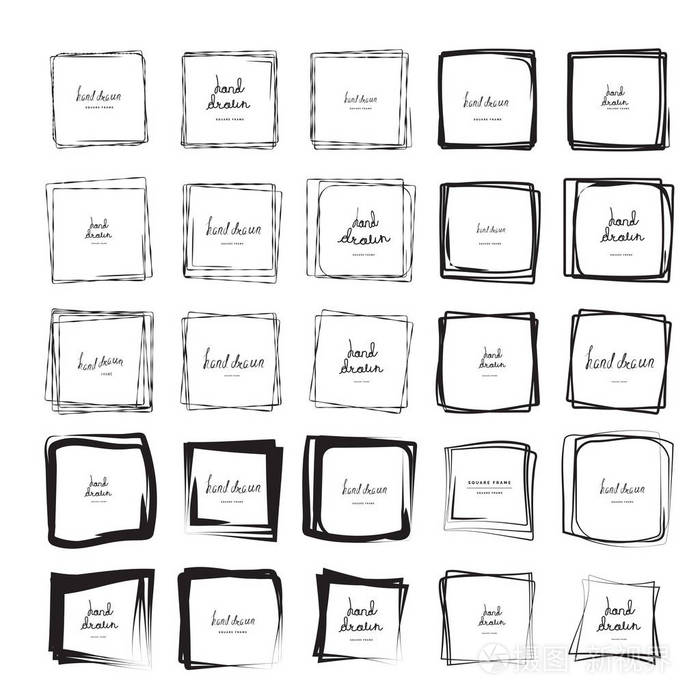 hand drawn
SQUARE FRAME
hand
drawn
SQUARE FRAME
hand drawn
SQUARE FRAME
hand drawn
SQUARE FRAME
hand
drawn
SQUARE FRAME
hand
drawn
SQUARE FRAME
hand drawn
SQUARE FRAME
hand
drawn
SQUARE FRAME
hand drawn
SQUARE FRAME
hand
drawn
SQUARE FRAME
hand drawn
FRAME
hand drawn
SQUARE FRAME
hand
drawn
SQUARE FRAME
hand
drawn
SQUARE FRAME
hand drawn
SQUARE FRAME
hand
drawn
SQUARE FRAME
hand drawn
SQUARE FRAME
hand drawn
SQUARE FRAME
SQUARE FRAME
SQUARE FRAME
hand drawn
SQUARE FRAME
hand
drawn
SQUARE FRAME
hand drawn
SQUARE FRAME
hand
drawn
SQUARE FRAME
hand drawn
SQUARE FRAME
hand
drawn
SQUARE FRAME
摄图·新视界